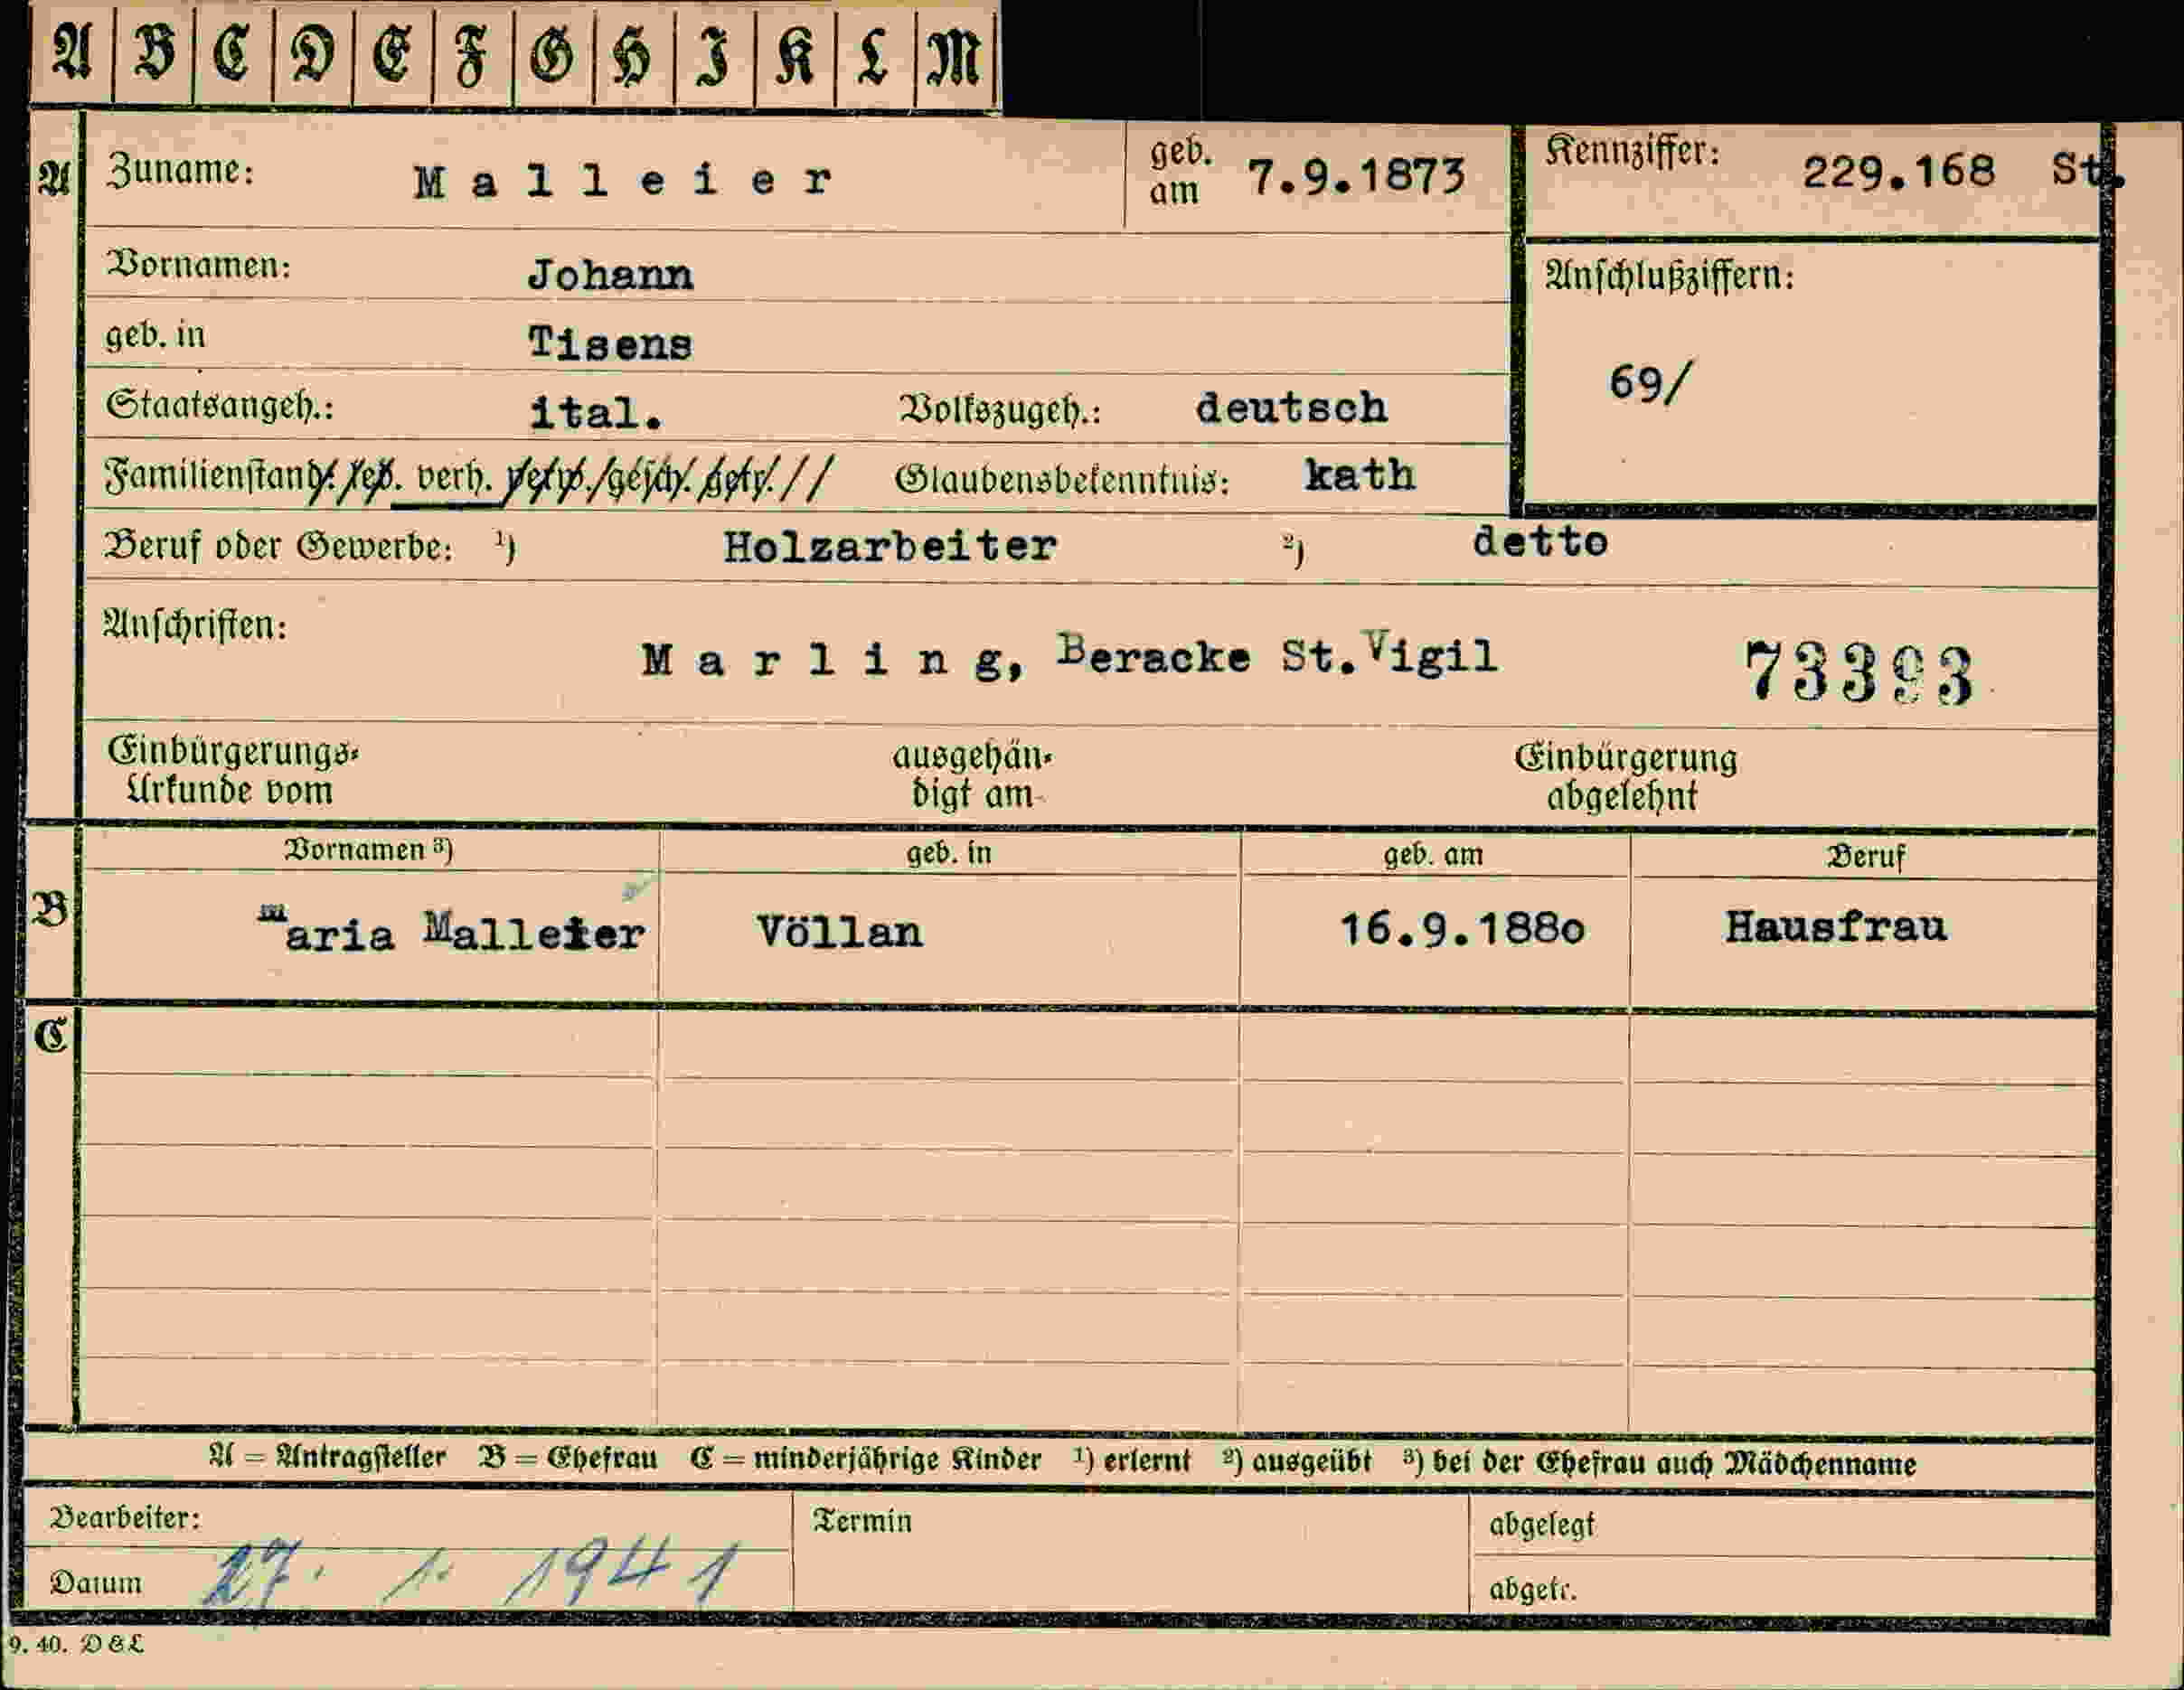 A B C D E F G H I K L M
A Zuname: Malleier geb. am 7.9.1873 Kennziffer: 229.168 St.
Vornamen: Johann Anschlußziffern:
geb. in Tisens
69/
Staatsangeh.: ital. Volkszugeh.: deutsch
Familienstand: led. verh. verw. gesch. getr. // Glaubensbekenntnis: kath
Beruf oder Gewerbe: ¹) Holzarbeiter ²) detto
Anschriften: Marling, Beracke St.Vigil 73393
Einbürgerungs- ausgehän- Einbürgerung
Urkunde vom digt am abgelehnt
Vornamen ³) geb. in geb. am Beruf
B maria Malleier Völlan 16.9.188o Hausfrau
C
A = Antragsteller B = Ehefrau C = minderjährige Kinder ¹) erlernt ²) ausgeübt ³) bei der Ehefrau auch Mädchenname
Bearbeiter: Termin abgelegt
Datum 27. 1. 1941 abgetr.
9. 40. D & L